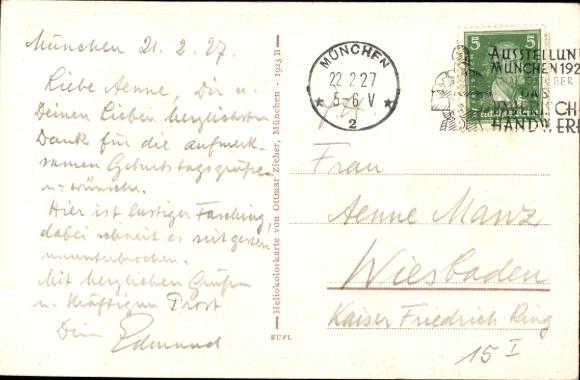 München 21. 2. 27.
Liebe Aenne, Dir u.
Deinen Lieben herzlichsten
Dank für die aufmerk-
samen Geburtstagsgrüße
u. wünsche.
Hier ist lustiger Fasching,
dabei schneit es seit gestern
ununterbrochen.
Mit herzlichen Grüßen
u. kräftigem Prost
Dein Edmund
Heliokolorkarte von Ottmar Zieher, München - 1923 B
KUFL
MÜNCHEN
22 2 27
5-6 V
2
5
AUSSTELLUN
MÜNCHEN 192
DAS
HANDWER
Frau
Aenne Manz
Wiesbaden
Kaiser Friedrich Ring
15 I